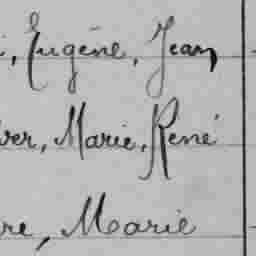 , Eugène, Jean
ver, Marie, René
re, Marie